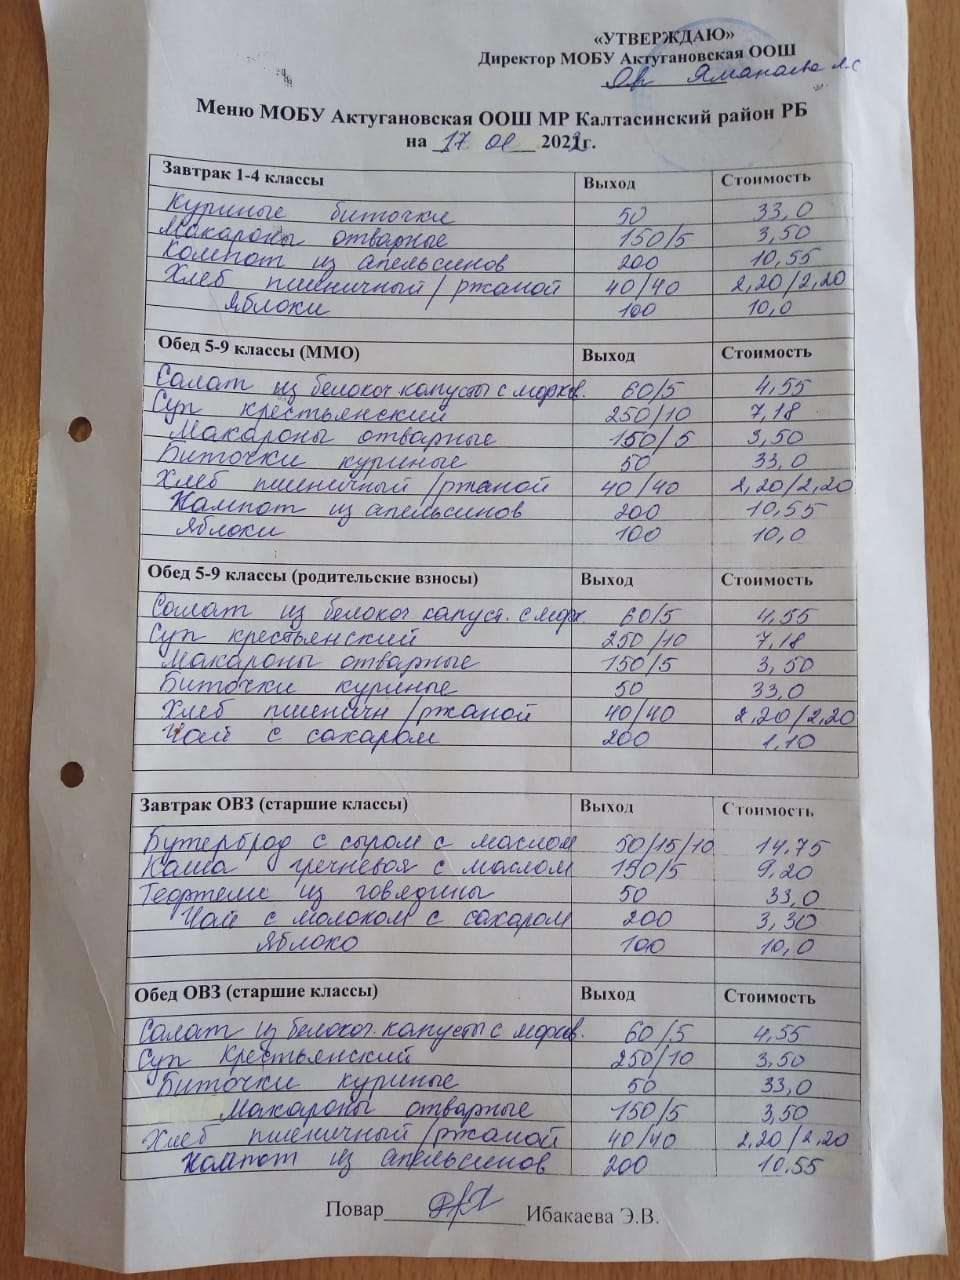 «УТВЕРЖДАЮ»
Директор МОБУ Актугановская ООШ
Яманаева
Меню МОБУ Актугановская ООШ МР Калтасинский район РБ
на 17 01 2022г.
Завтрак 1-4 классы Выход Стоимость
Куриные биточки 50 33,0
Макароны отварные 150/5 3,50
Компот из апельсинов 200 10,55
Хлеб пшеничный/ржаной 40/40 2,20/2,20
Яблоки 100 10,0
Обед 5-9 классы (ММО) Выход Стоимость
Салат из белокоч капусты с морков. 60/5 4,55
Суп крестьянский 250/10 7,18
Макароны отварные 150/5 3,50
Биточки куриные 50 33,0
Хлеб пшеничный/ржаной 40/40 2,20/2,20
Компот из апельсинов 200 10,55
Яблоки 100 10,0
Обед 5-9 классы (родительские взносы) Выход Стоимость
Салат из белокоч капуст. с морк. 60/5 4,55
Суп крестьянский 250/10 7,18
Макароны отварные 150/5 3,50
Биточки куриные 50 33,0
Хлеб пшеничн/ржаной 40/40 2,20/2,20
Чай с сахаром 200 1,10
Завтрак ОВЗ (старшие классы) Выход Стоимость
Бутерброд с сыром с маслом 50/15/10 14,75
Каша гречневая с маслом 150/5 9,20
из говядины 50 33,0
Чай с молоком с сахаром 200 3,30
Яблоко 100 10,0
Обед ОВЗ (старшие классы) Выход Стоимость
Салат из белокоч. капусты с морков. 60/5 4,55
Суп крестьянский 250/10 3,50
Биточки куриные 50 33,0
Макароны отварные 150/5 3,50
Хлеб пшеничный/ржаной 40/40 2,20/2,20
Компот из апельсинов 200 10,55
Повар Ибакаева Э.В.